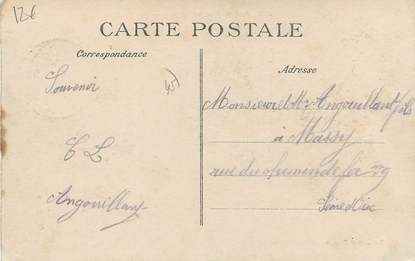 12€
CARTE POSTALE
Correspondance
Adresse
Souvenir
45
Monsieur et Mr Angouillant fils
à Massy
rue du chemin de fer 29
Seine et Oise
E L
Angouillant